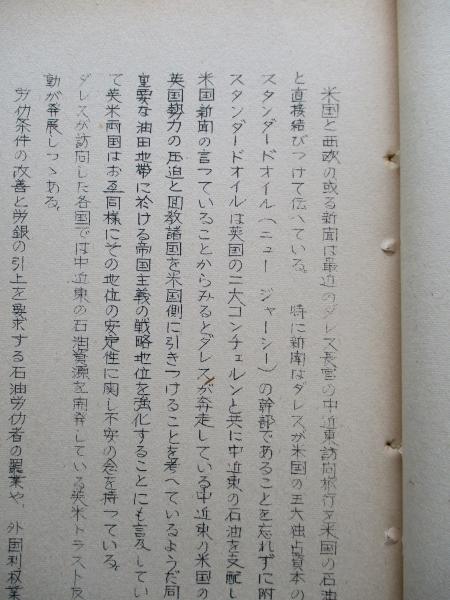 米国と西欧の或る新聞は最近のダレス長官の中近東訪問旅行を米国の石油
と直接結びつけて伝へている。 特に新聞はダレスが米国の三大独占資本の
スタンダードオイル(ニュー ジャーシー)の幹部であることを忘れずに附
スタンダードオイルは英国の二大コンチェルンと共に中近東の石油を支配し
米国新聞の言っていることからみるとダレスが奔走している中近東の米国の
英国勢力の圧迫と回教諸国を米国側に引きつけることを考へているようだ同
重要な油田地帯に於ける帝国主義の戦略地位を強化することにも言及してい
て英米両国はお互同様にその地位の安定性に関し不安の念を持っている。
ダレスが訪問した各国では中近東の石油資源を開発している英米トラスト反
動が発展しつゝある。
労仂条件の改善と労銀の引上を要求する石油労仂者の罷業や、外国利权業